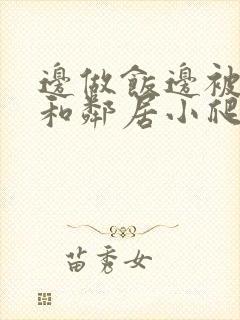 邊做飯邊被
和鄰居小爬
苗秀女